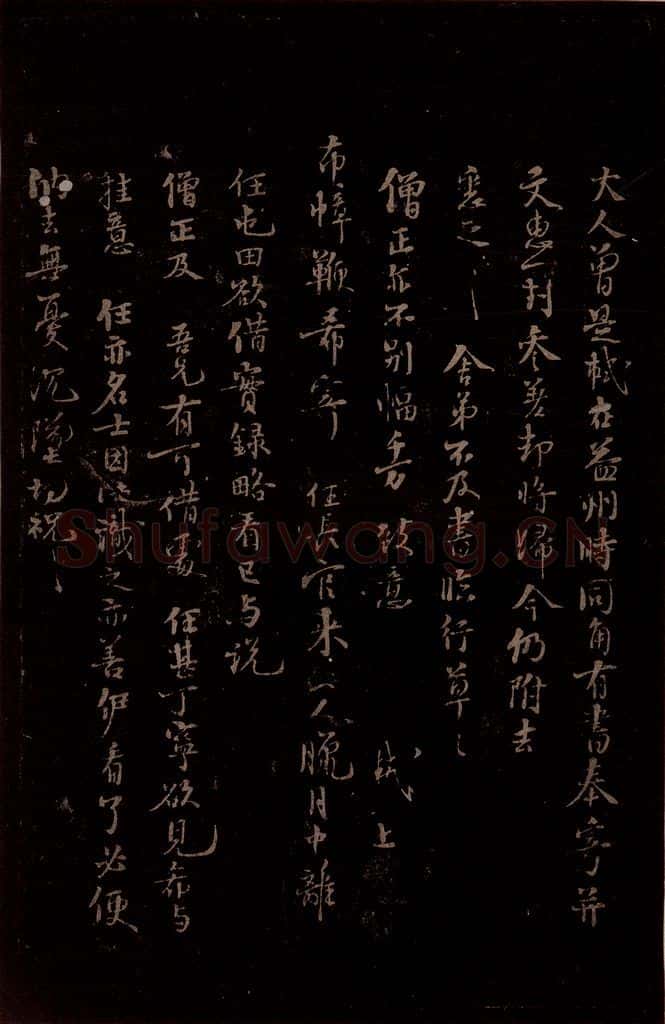 大人曾是軾在益州時同角有書奉寄并
文惠一封不差却將歸今仍附去
舍弟不及書臨行草〻
僧正亦不別幅千万致意 軾上
布幛鞭希寄 任長官來一人臘月中離
任屯田欲借實錄略看已与說
僧正及 吾兄有可借處 任甚丁寧欲見希与
挂意 任亦名士因識之亦善伊看了必便
納去無憂沉墜切祝〻
Shufawang.CN